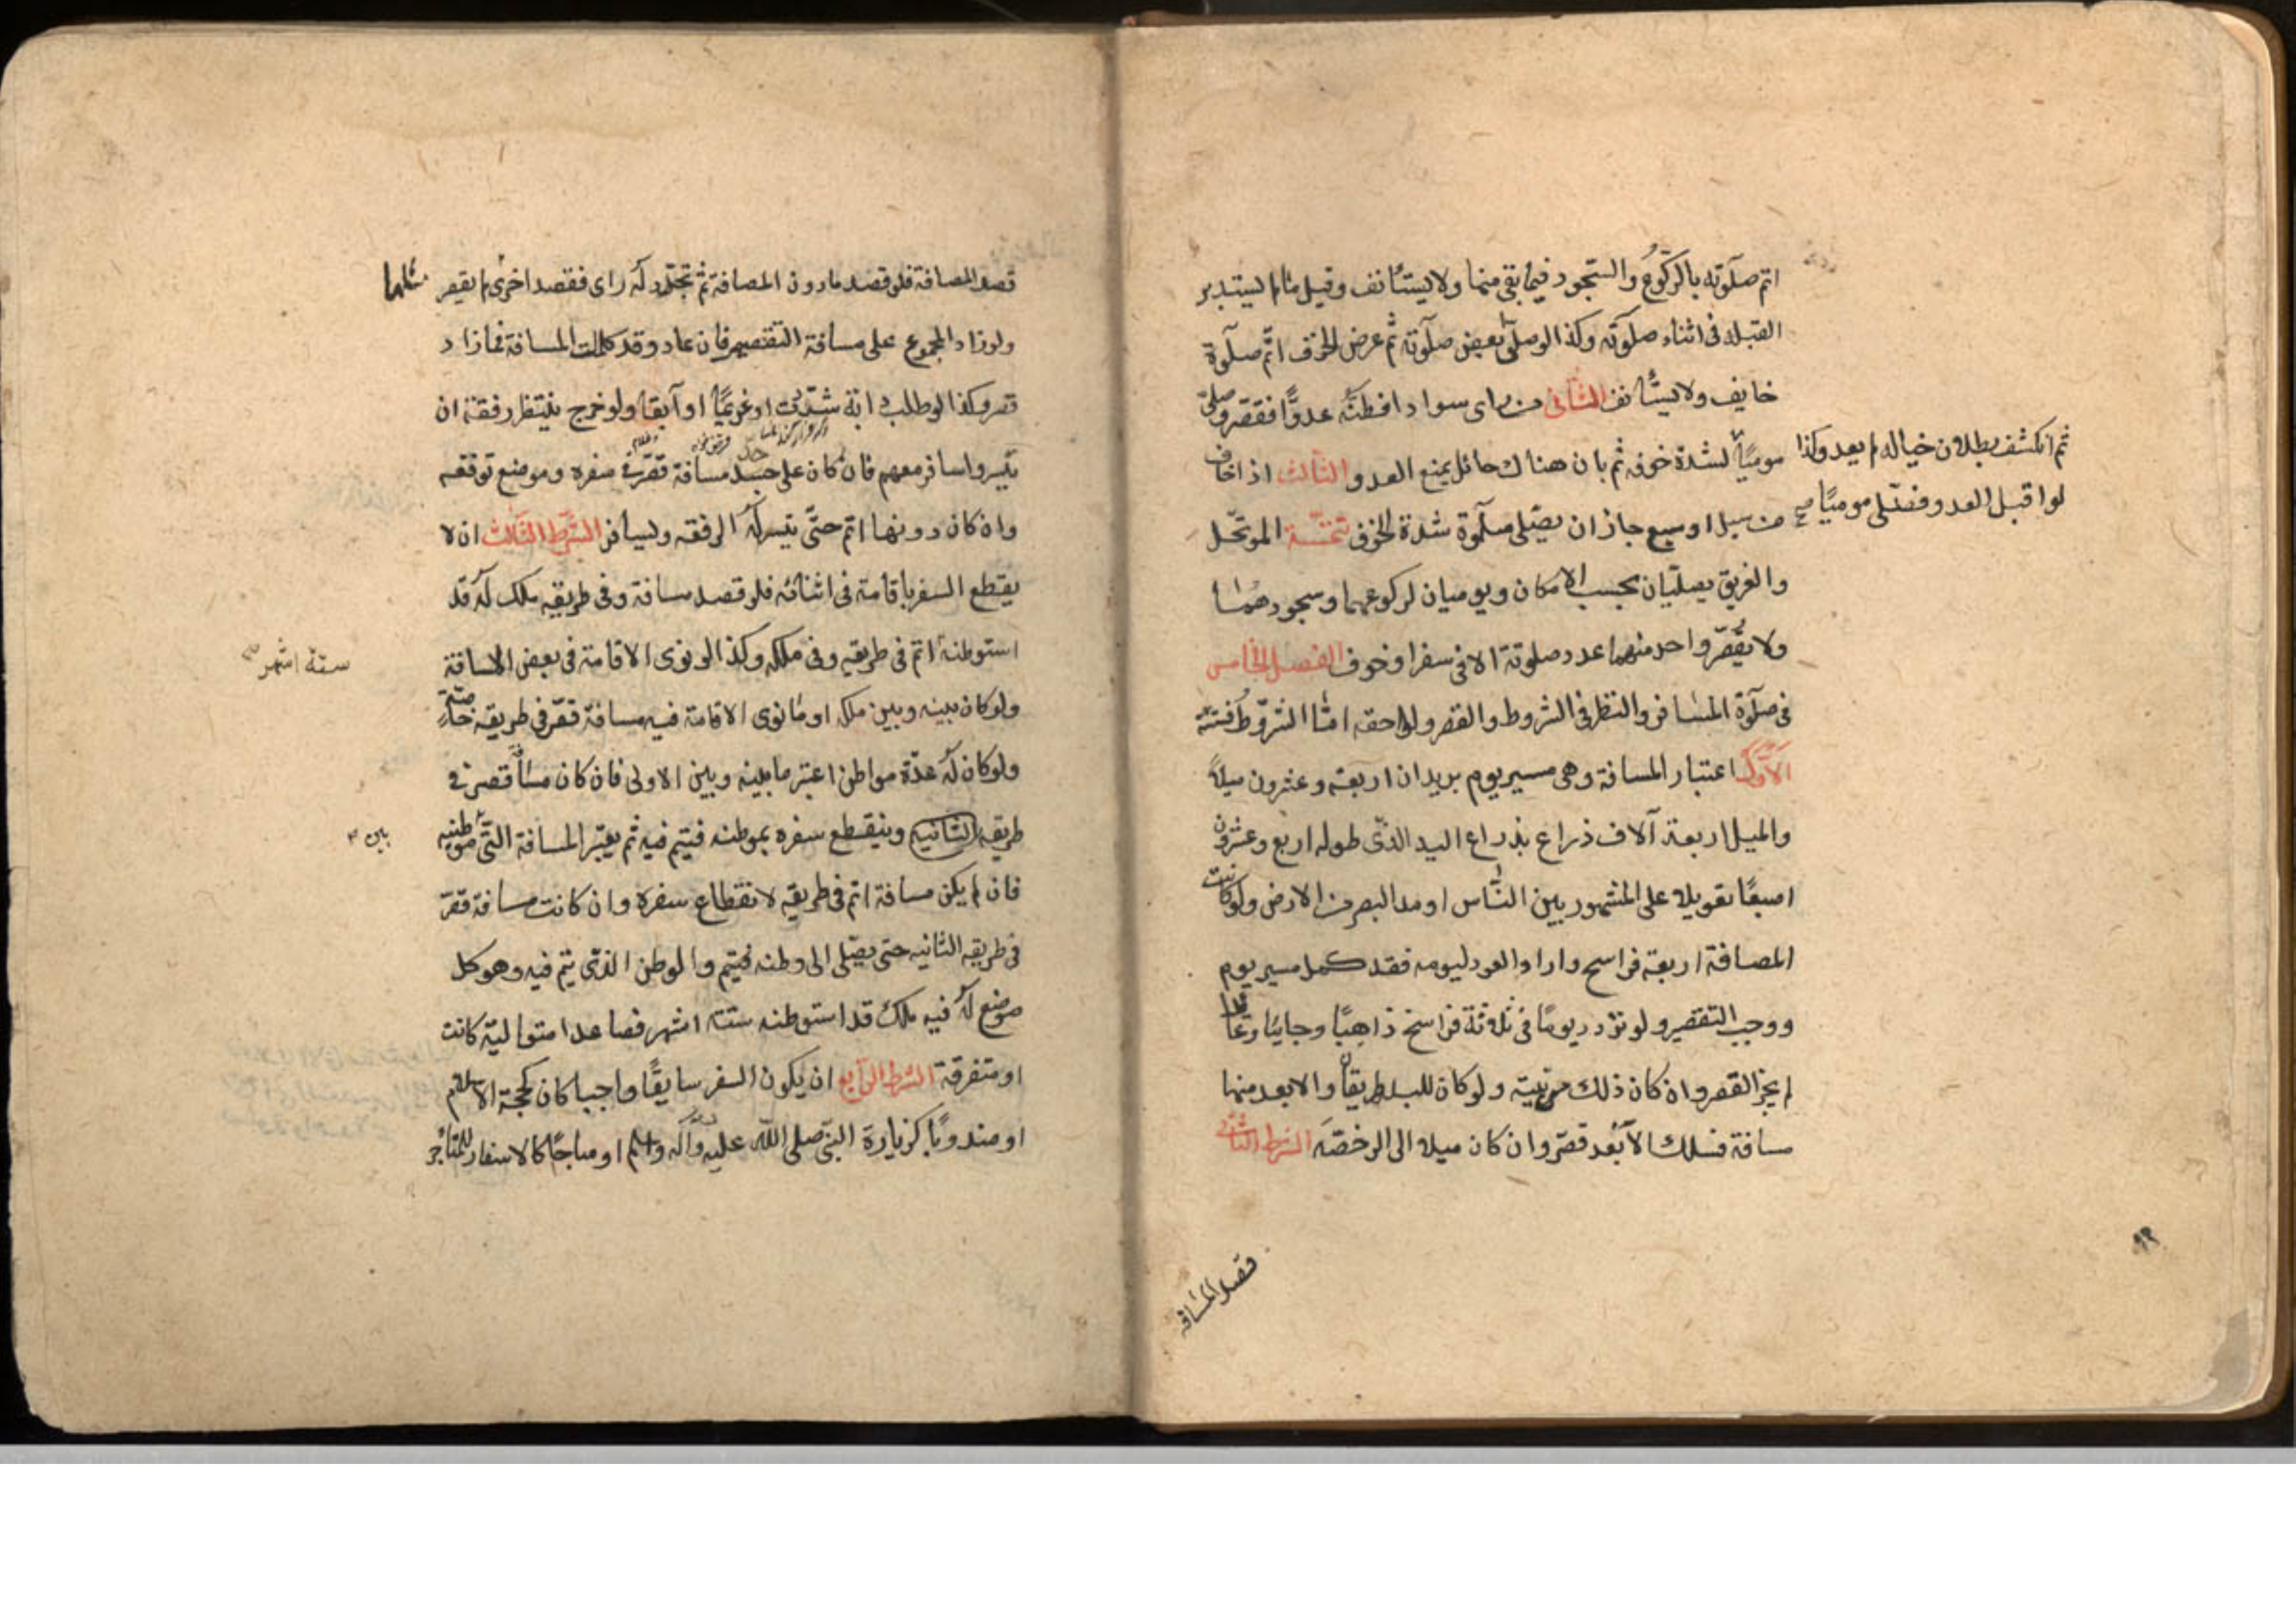 اتم صلوته بالركوع والسجود فيما بقى منها ولا يستانف وقيل ما لم يستدبر
القبلة فى اثناء صلوته وكذا لو صلى بعض صلوته ثم عرض الخوف اتم صلوة
خايف ولا يستانف الثانى من راى سوادا فظنه عدوًّا فقصر وصلى
موميًا لشدة خوفه ثم بان هناك حائل يمنع العدو الثالث اذا خاف
من سيل او سبع جاز ان يصلى صلوة شدة الخوف تتمة الموتحل
والغريق يصليان بحسب الامكان ويوميان لركوعهما وسجودهما
ولا يقصر واحد منهما عدد صلوته الا فى سفر او خوف الفصل الخامس
فى صلوة المسافر والنظر فى الشروط والقصر ولواحقه امّا الشروط فستة
الاول اعتبار المسافة وهى مسير يوم بريدان اربعة وعشرون ميلاً
والميل اربعة آلاف ذراع بذراع اليد الذى طوله اربع وعشرون
اصبعًا تعويلا على المشهور بين الناس او مد البصر من الارض ولو كانت
المصافة اربعة فراسخ واراد العود ليومه فقد كمل مسير يوم
ووجب التقصير ولو تردد يومًا فى ثلاثة فراسخ ذاهبًا وجايئا وعائدا
لم يجز القصر وان كان ذلك من نيته ولو كان للبلد طريقان والابعد منهما
مسافة فسلك الابعد قصّر وان كان ميلا الى الرخصة الشرط الثانى
ثم انكشف بطلان خياله لم يعد وكذا
لو اقبل العدو فصلى موميًا صح
قصد المسافة
٩٢
قصد المصافة فلو قصد مادون المصافة ثم تجدد له راى فقصد اخرى لم يقصر
مثلها
ولو زاد المجموع على مسافة التقصير فان عاد وقد كملت المسافة فما زاد
قصر وكذا لو طلب دابة شذت او غريمًا او آبقا ولو خرج ينتظر رفقة ان
تيسروا سافر معهم فان كان على حد مسافة قصر فى سفره وموضع توقفه
وان كان دونها اتم حتى تيسر له الرفقه ويسافر الشرط الثالث ان لا
يقطع السفر باقامة فى اثنائه فلو قصد مسافة وفى طريقه ملك له قد
استوطنه اتم فى طريقه وفى ملكه وكذا لو نوى الاقامة فى بعض المسافة
ستة اشهر
ولو كان بينه وبين ملكه او ما نوى الاقامة فيه مسافة قصر فى طريقه خاصة
ولو كان له عدّة مواطن اعتبر ما بينه وبين الاولى فان كان مسافة قصر فى
طريقه الثانيه وينقطع سفره بموطنه فيتم فيه ثم يعتبر المسافة التى موطنيه
بين
فان لم يكن مسافة اتم فى طريقه لانقطاع سفره وان كانت مسافة قصر
فى طريقه الثانيه حتى يصلى الى وطنه فيتم والوطن الذى يتم فيه وهو كل
موضع له فيه ملك قد استوطنه ستة اشهر فصاعدا متوالية كانت
او متفرقة الشرط الرابع ان يكون السفر سايغًا واجبا كان كحجة الاسلام
او مندوبًا كزيارة النبى صلى الله عليه وآله وسلم او مباحًا كالاسفار للمتاجر